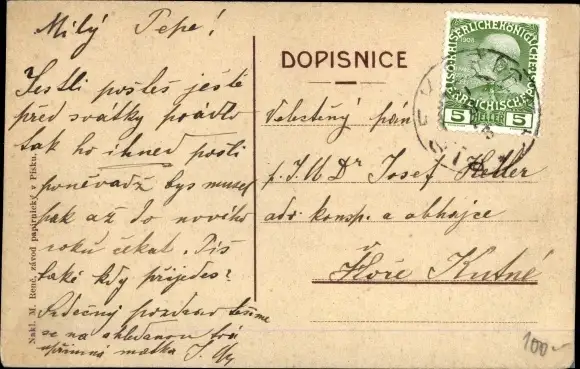 Milý Pepe!
Jestli pošleš ještě
před svátky prádlo
tak ho ihned pošli
poněvadž bys musel
pak až do nového
roku čekat. Piš
také kdy přijedeš?
Srdečný pozdrav těšíme
se na shledanou
upřímná matka
Nakl. M. Renč, závod papírnický v Písku.
DOPISNICE
1908
5
HELLER
5
Velectěný pán
p. J. U Dr Josef Heller
adv. konsp. a obhájce
Hoře Kutné
100